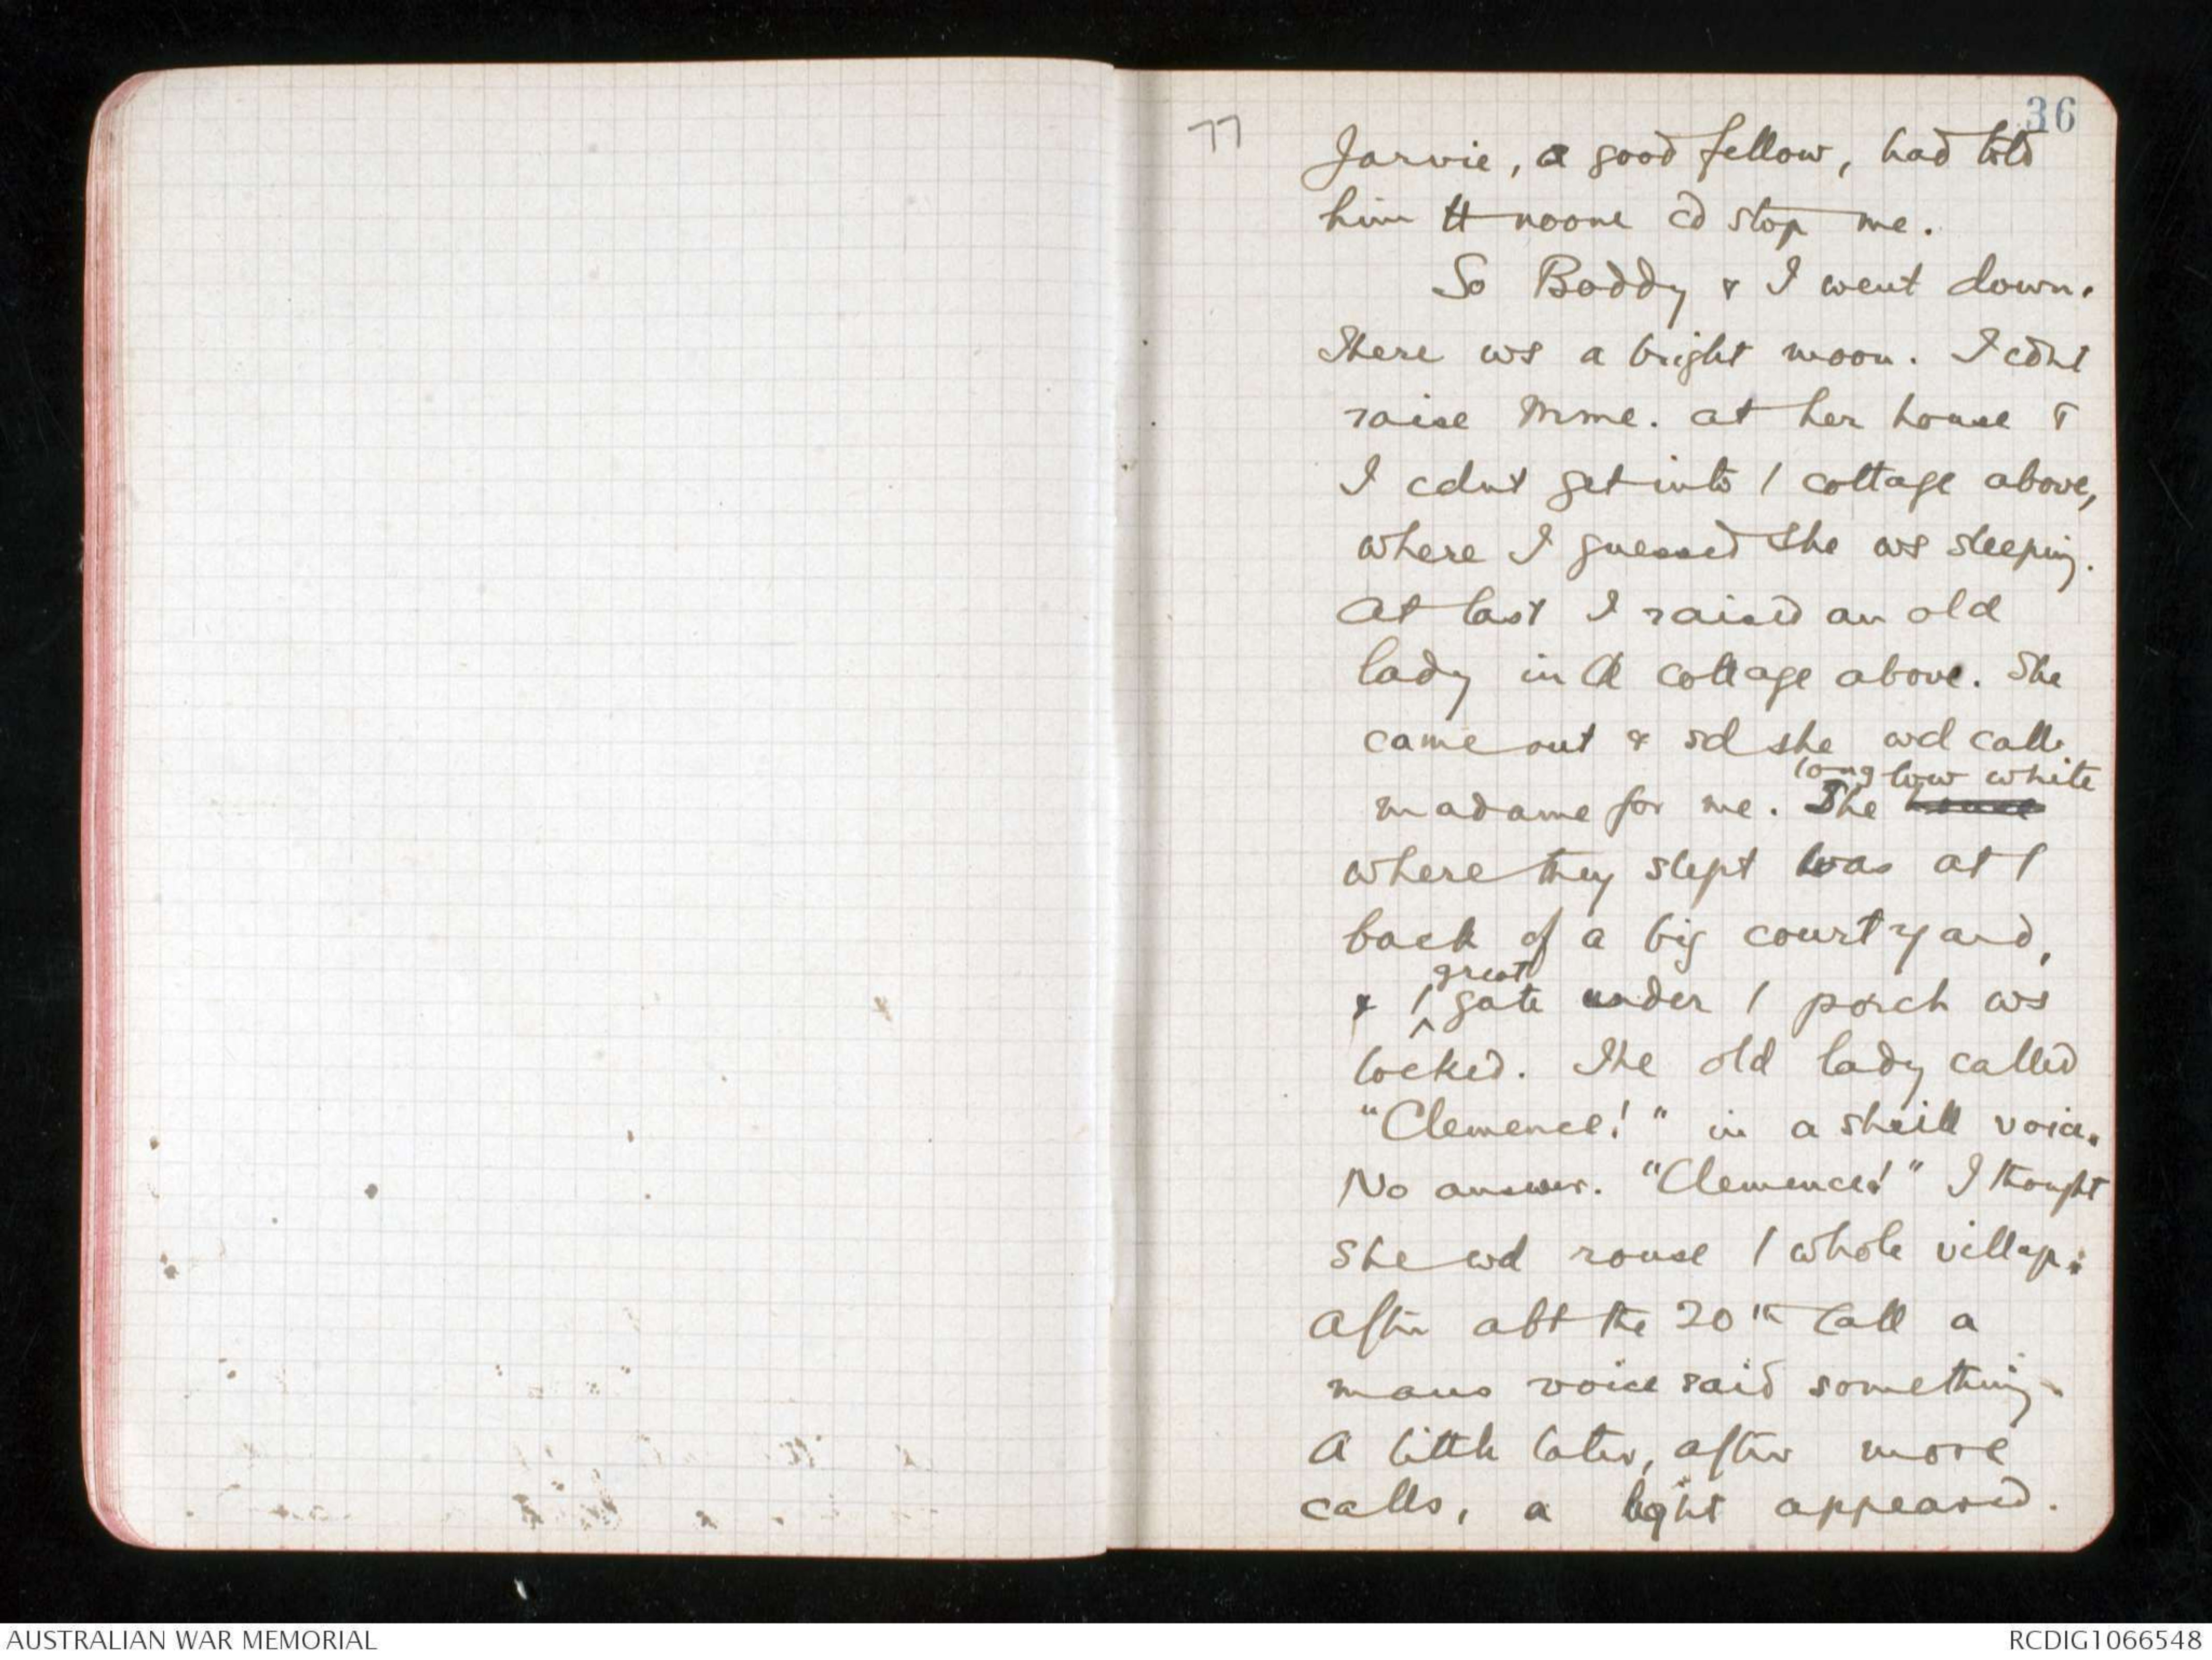 36
77
Jarvie, a good fellow, had told
him tt noone cd stop me.
So Boddy & I went down.
There ws a bright moon. I cdnt
raise Mme. at her house &
I cdnt get into / cottage above,
where I guessed she ws sleeping.
At last I raised an old
lady in a cottage above. She
came out & sd she wd call
long low white
madame for me. The house
where they slept was at /
back of a big courtyard,
great
& / gate under / porch ws
locked. The old lady called
"Clemence!" in a shrill voice.
No answer. "Clemence!" I thought
she wd rouse / whole village.
After abt the 20th call a
mans voice said something.
A little later, after more
calls, a light appeared.
AUSTRALIAN WAR MEMORIAL
RCDIG1066548